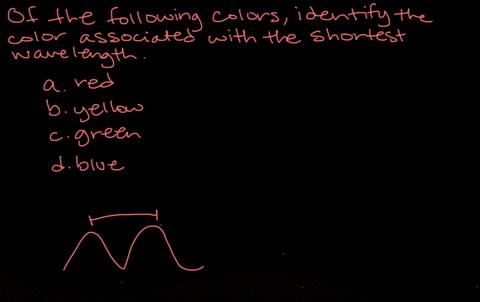 Of the following colors, identify the
color associated with the shortest
wavelength.
a. red
b. yellow
c. green
d. blue